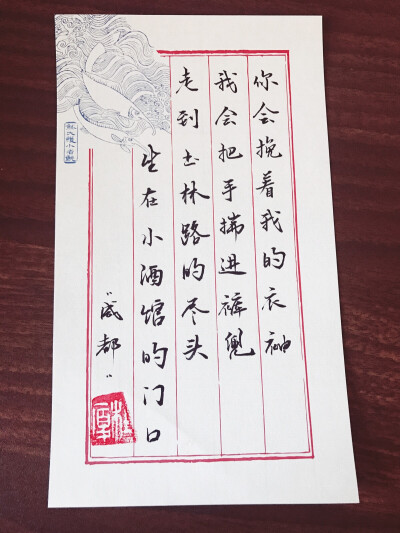 你会挽着我的衣袖
我会把手揣进裤兜
走到玉林路的尽头
坐在小酒馆的门口
“成都”